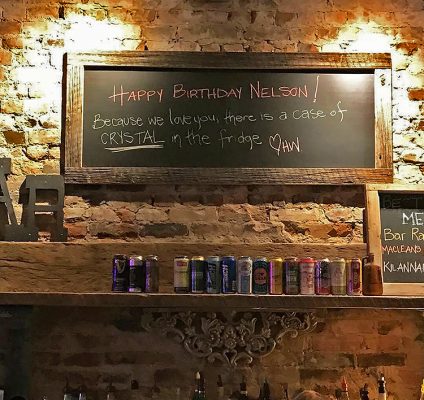 Happy Birthday Nelson!
Because we love you, there is a case of
CRYSTAL in the fridge ♡HW
AR
ME
Bar Ra
MACLEAN'S
KILANNA